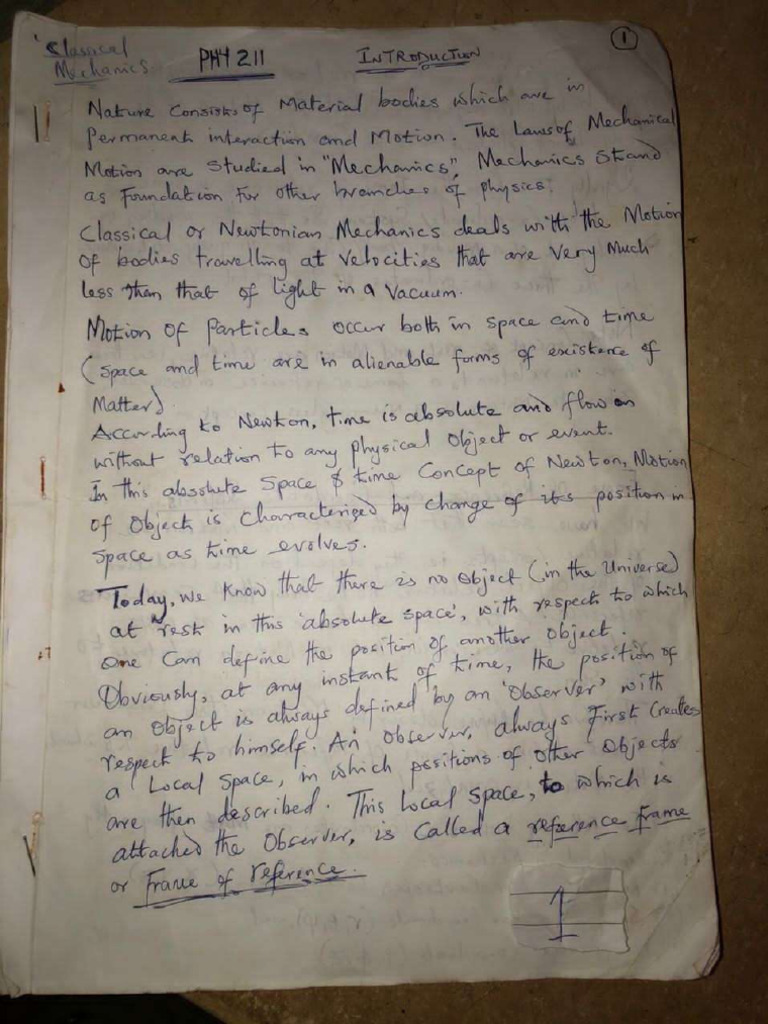 Classical
Mechanics
PHY 211
INTRODUCTION
1
Nature consists of Material bodies which are in
permanent interaction and Motion. The Laws of Mechanical
Motion are studied in "Mechanics". Mechanics stand
as Foundation for other branches of physics.
Classical or Newtonian Mechanics deals with the Motion
of bodies travelling at velocities that are very much
less than that of light in a vacuum.
Motion of Particles occur both in space and time
(space and time are in alienable forms of existence of
Matter)
According to Newton, time is absolute and flow on
without relation to any physical object or event.
In this absolute space & time concept of Newton, Motion
of object is characterized by change of its position in
space as time evolves.
Today, we know that there is no object (in the Universe)
at rest in this 'absolute space', with respect to which
one can define the position of another object.
Obviously, at any instant of time, the position of
an object is always defined by an 'observer' with
respect to himself. An observer, always first creates
a local space, in which positions of other objects
are then described. This local space, to which is
attached the observer, is called a reference frame
or frame of reference.
1